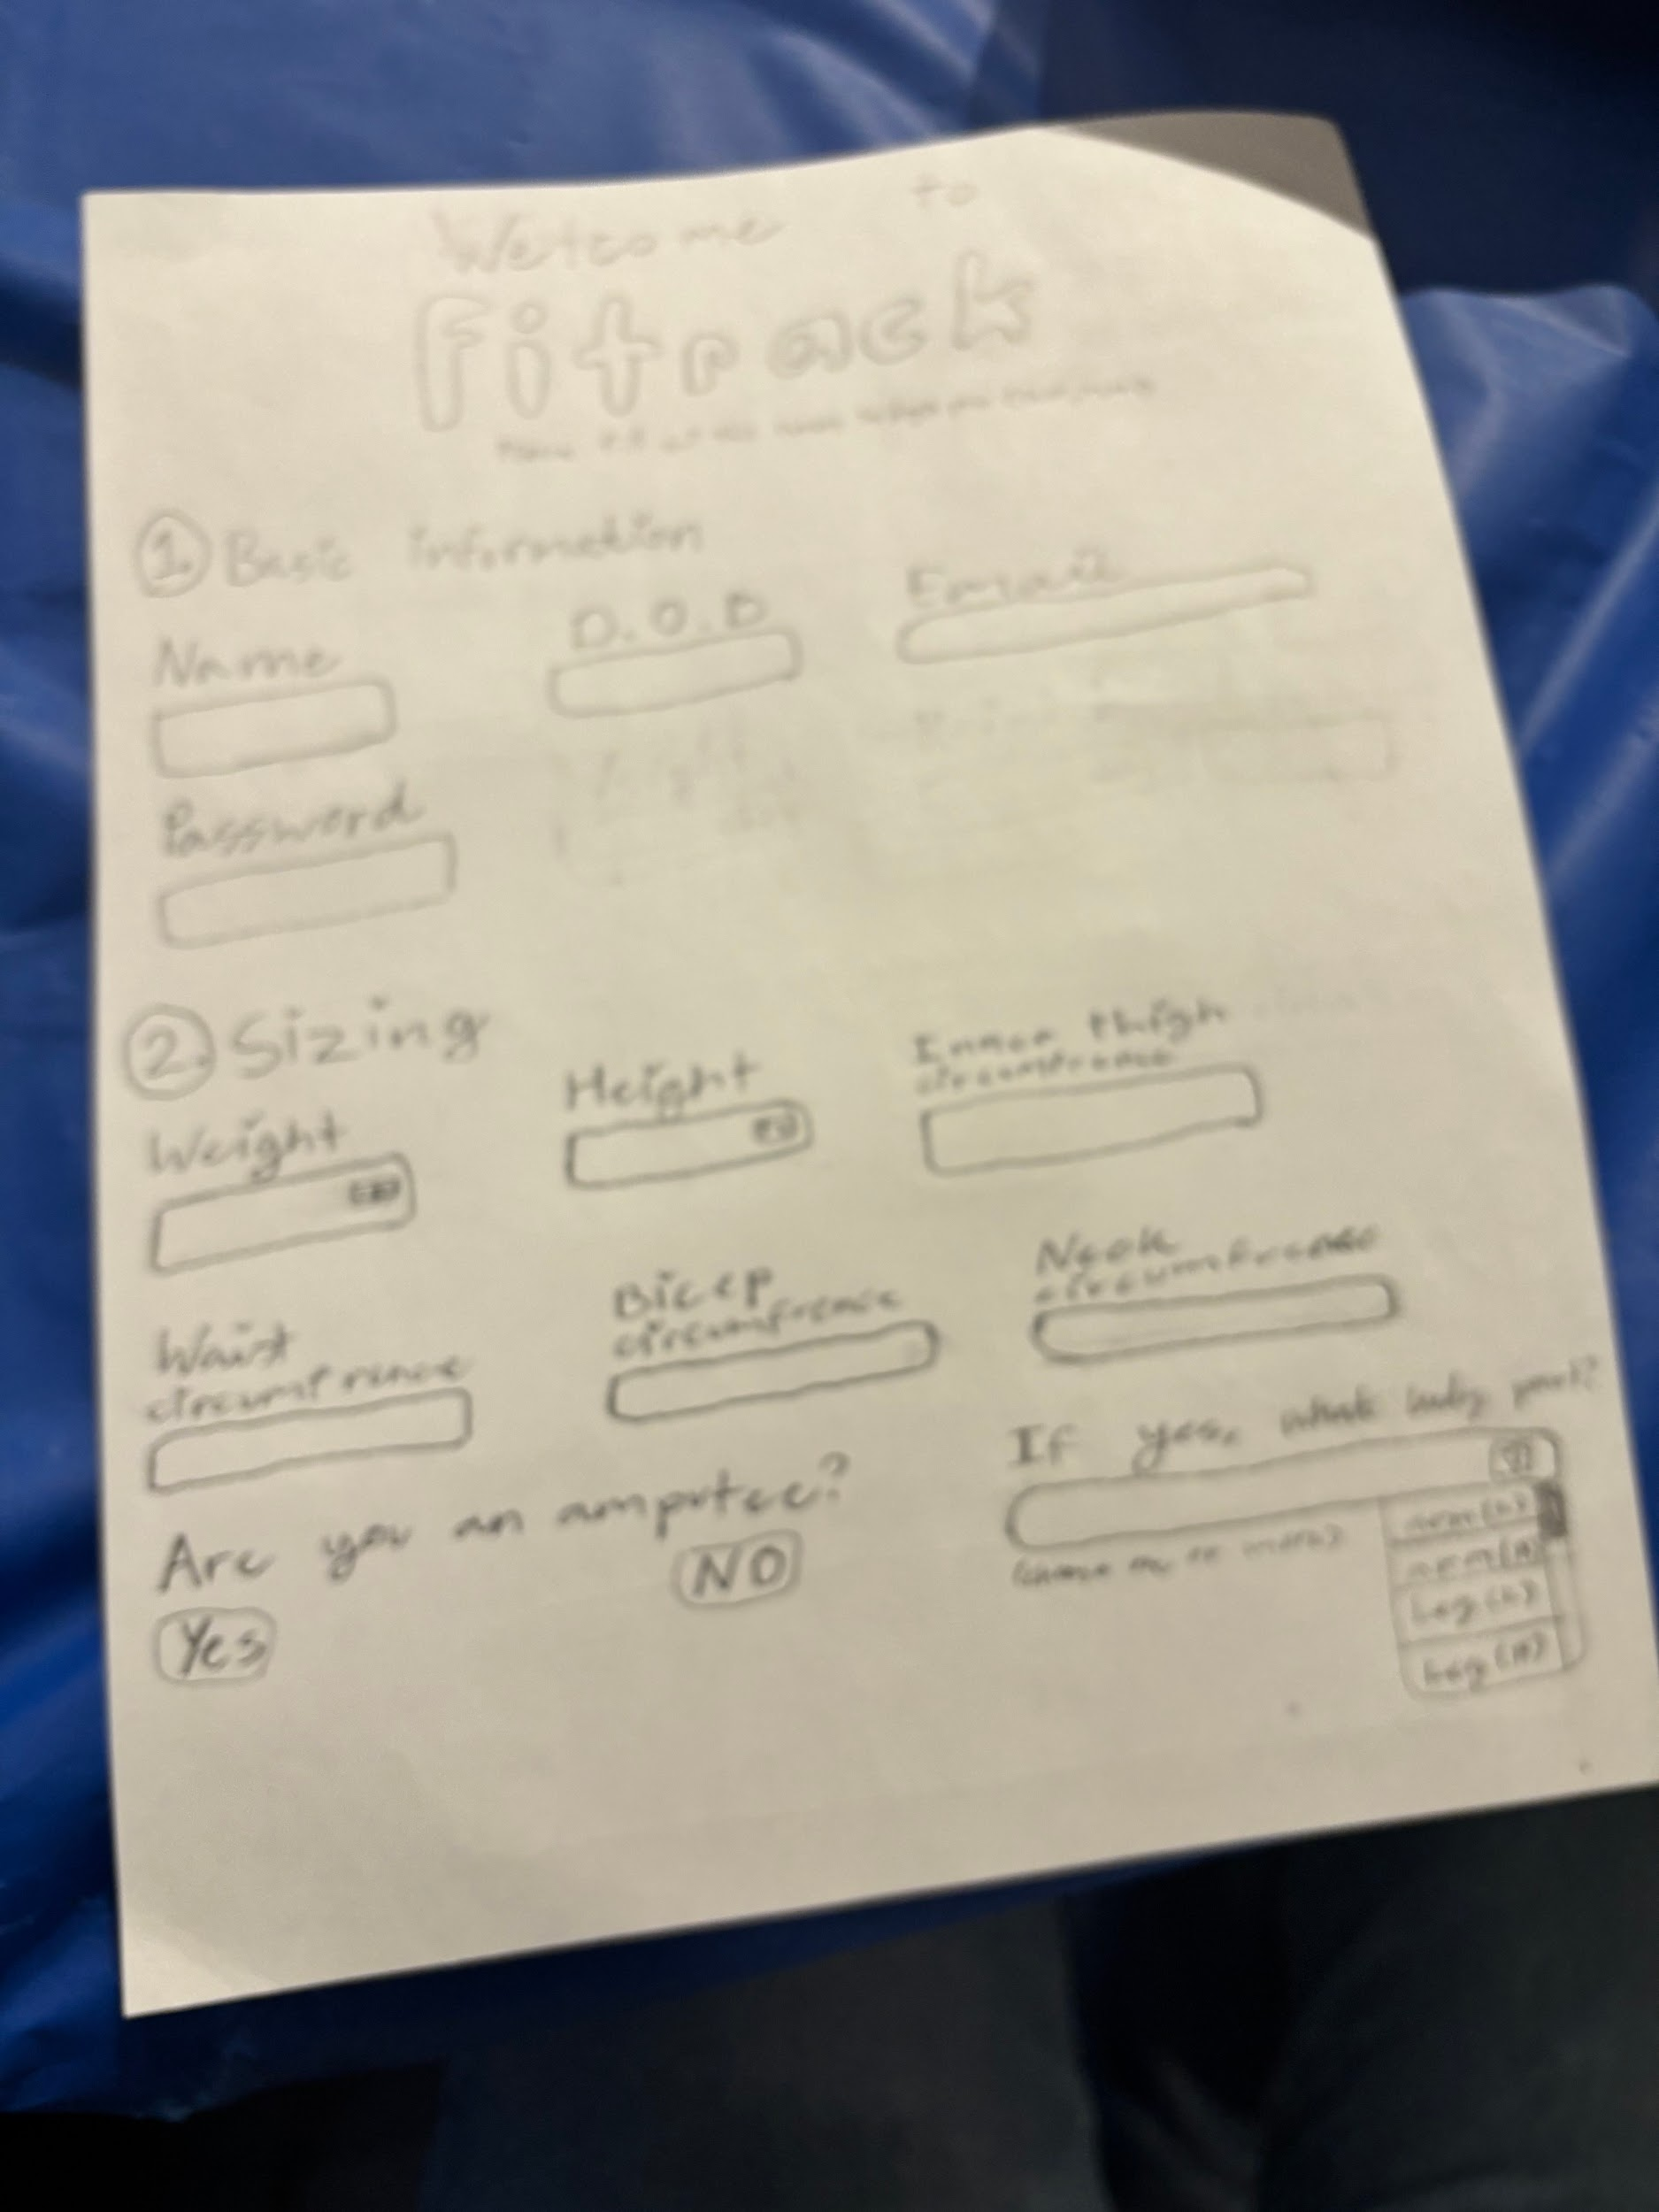 Welcome to
Fitrack
1. Basic information
Name
D.O.B
Email
Password
2. Sizing
Weight
Height
Inner thigh
circumfrence
Waist
circumfrence
Bicep
circumfrence
Neck
circumfrence
Are you an amputee?
Yes
NO
If yes, what body part?
arm(L)
arm(R)
Leg(L)
Leg(R)